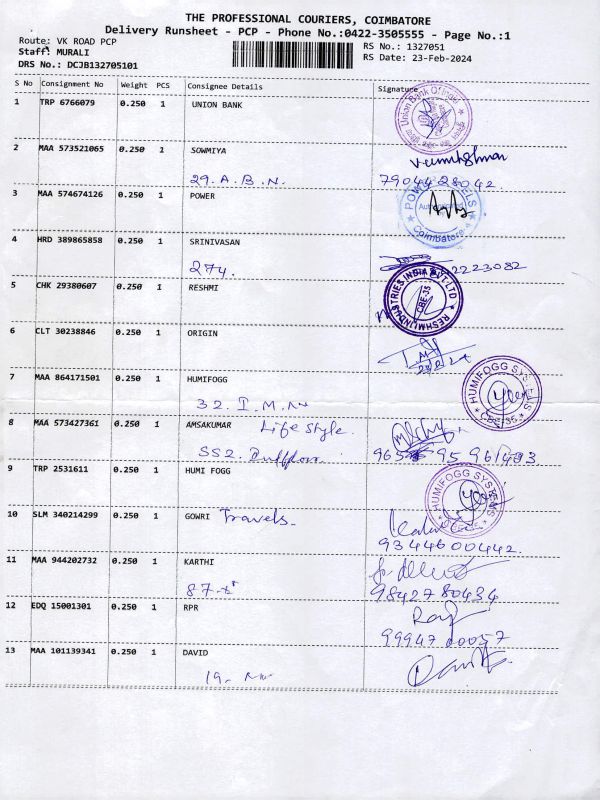 THE PROFESSIONAL COURIERS, COIMBATORE
Delivery Runsheet - PCP - Phone No.:0422-3505555 - Page No.:1
Route: VK ROAD PCP
RS No.: 1327051
Staff: MURALI
RS Date: 23-Feb-2024
DRS No.: DCJB132705101
S No Consignment No Weight PCS Consignee Details Signature
1 TRP 6766079 0.250 1 UNION BANK
Union Bank Of India
2 MAA 573521065 0.250 1 SOWMIYA
29. A. B. N.
3 MAA 574674126 0.250 1 POWER
Coimbatore
4 HRD 389865858 0.250 1 SRINIVASAN
274.
5 CHK 29380607 0.250 1 RESHMI
RESHMI INDUSTRIES INDIA PVT LTD
CBE-35
6 CLT 30238846 0.250 1 ORIGIN
7 MAA 864171501 0.250 1 HUMIFOGG
32. I. M. N
HUMIFOGG SYSTEMS
CBE-35
8 MAA 573427361 0.250 1 AMSAKUMAR Life style
SS2.
9 TRP 2531611 0.250 1 HUMI FOGG
HUMIFOGG SYSTEMS
10 SLM 340214299 0.250 1 GOWRI Travels.
9344600442.
11 MAA 944202732 0.250 1 KARTHI
9842780434
12 EDQ 15001301 0.250 1 RPR
13 MAA 101139341 0.250 1 DAVID
19.